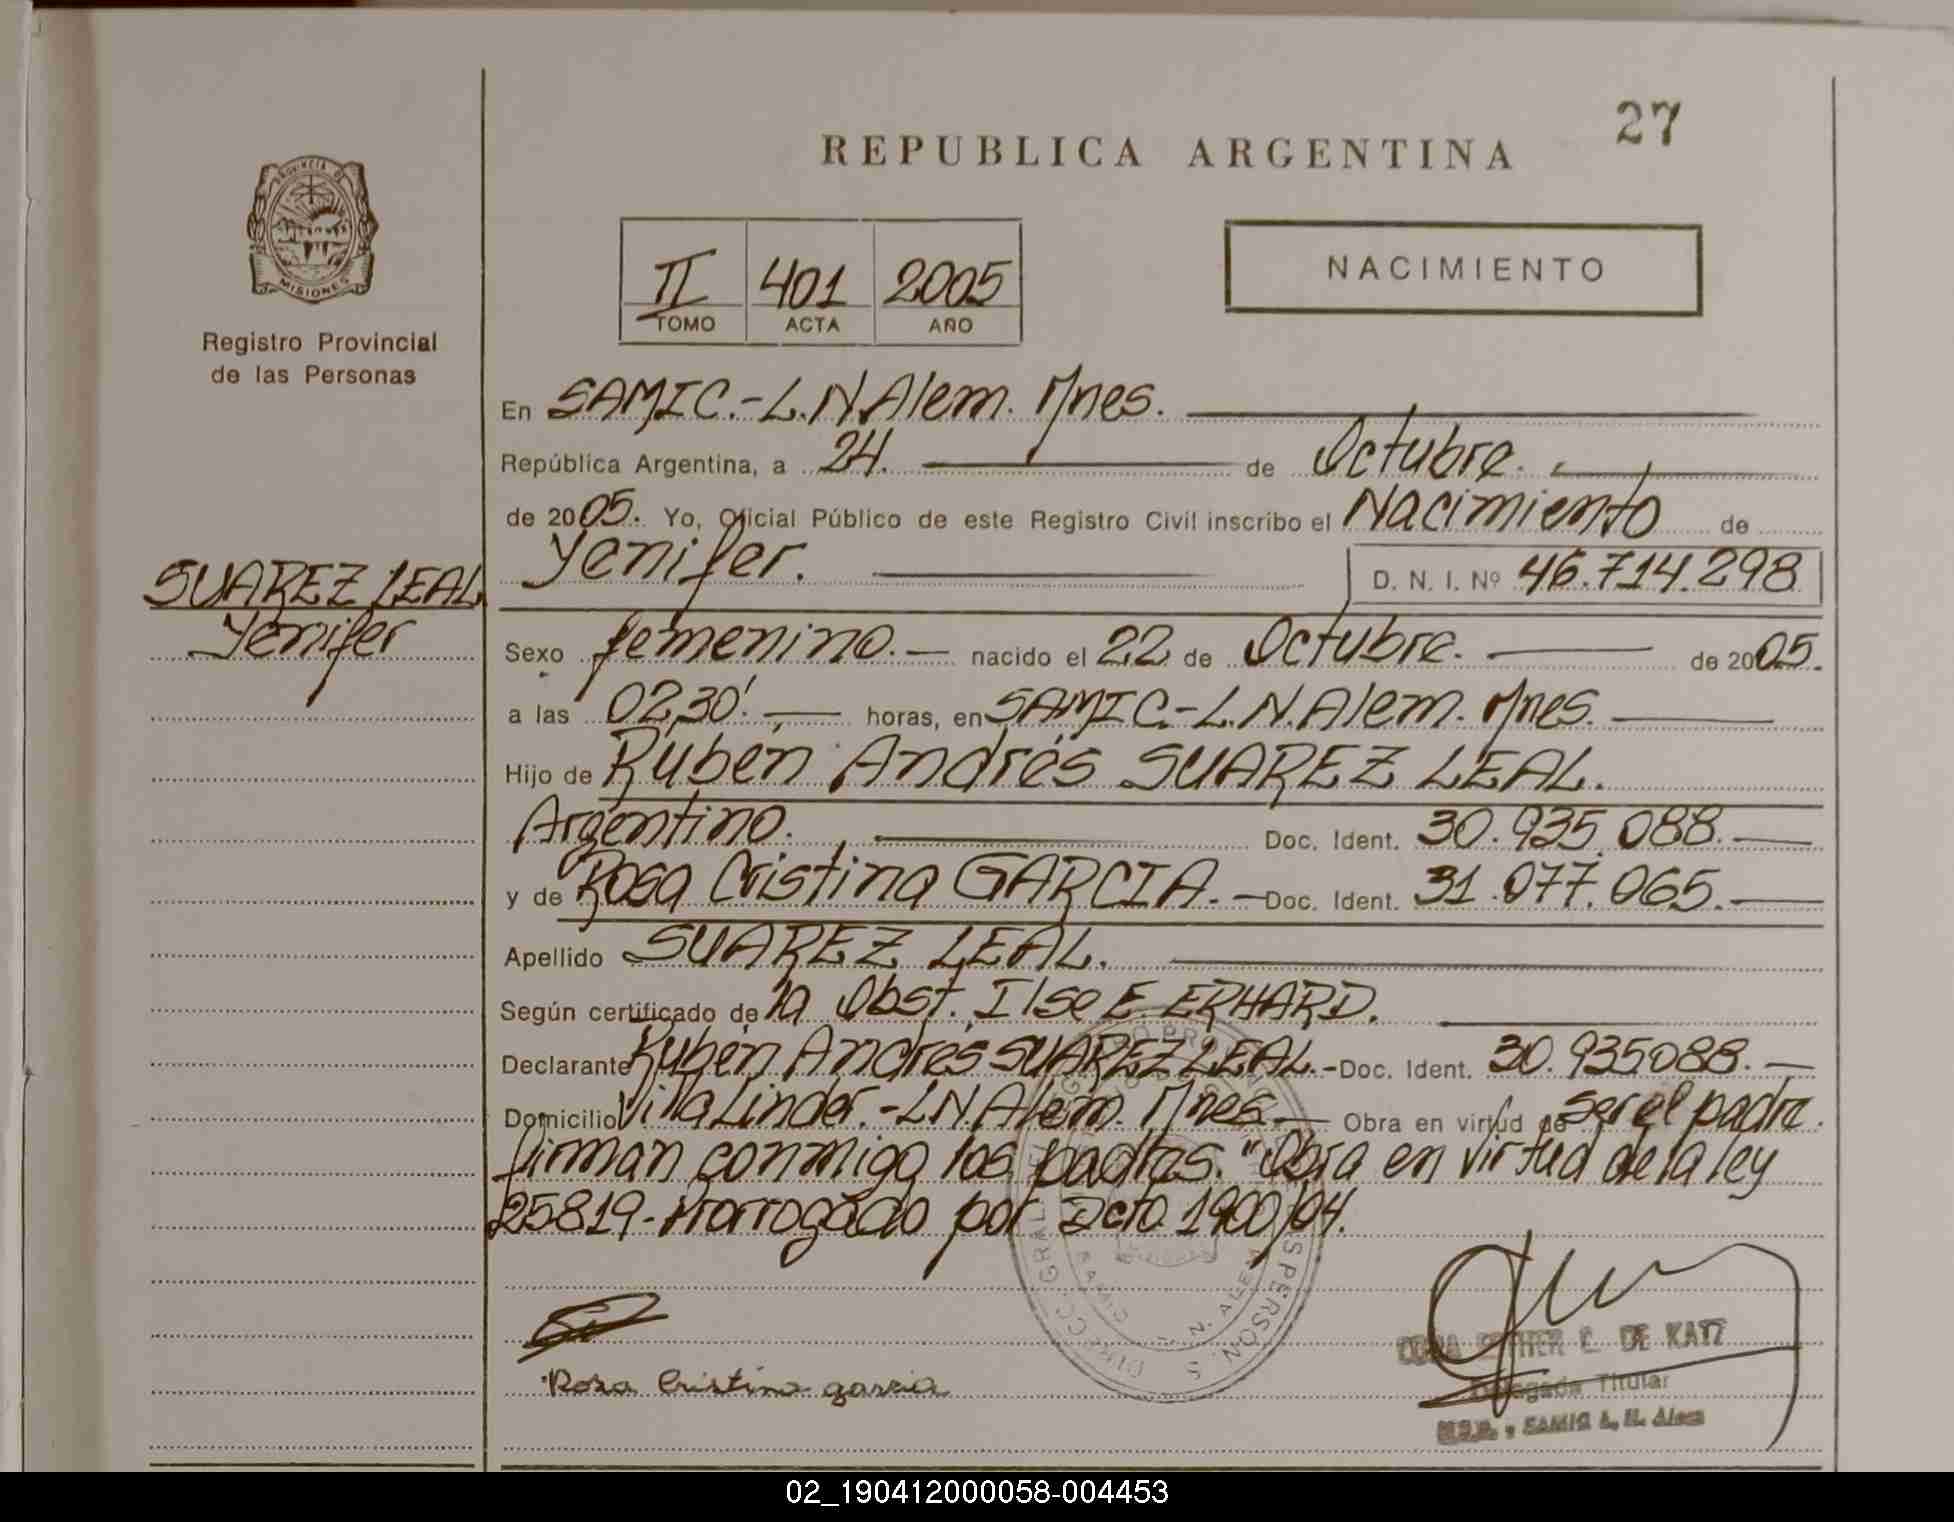 27
REPUBLICA ARGENTINA
PROVINCIA DE
MISIONES
Registro Provincial
de las Personas
II 401 2005
TOMO ACTA AÑO
NACIMIENTO
En SAMIC.-L.N.Alem. Mnes.
República Argentina, a 24. de Octubre.
de 2005. Yo, Oficial Público de este Registro Civil inscribo el Nacimiento de
Yenifer. D. N. I. Nº 46.714.298
SUAREZ LEAL
Yenifer
Sexo femenino.- nacido el 22 de Octubre. de 2005.
a las 02,30'. horas, en SAMIC.-L.N.Alem. Mnes.
Hijo de Rubén Andrés SUAREZ LEAL.
Argentino. Doc. Ident. 30.935.088.-
y de Rosa Cristina GARCIA.- Doc. Ident. 31.077.065.-
Apellido SUAREZ LEAL.
Según certificado de la Obst. Ilse E. ERHARD.
Declarante Rubén Andrés SUAREZ LEAL.- Doc. Ident. 30.935088.-
Domicilio Villa Linder.-LN.Alem. Mnes.- Obra en virtud de ser el padre.
firman conmigo los padres. "Obra en virtud de la ley
25819-Prorrogado por Dcto 1900/04.
Rosa Cristina garcia
ESTHER C. DE KATZ
Delegada Titular
SAMIC L. N. Alem
02_190412000058-004453